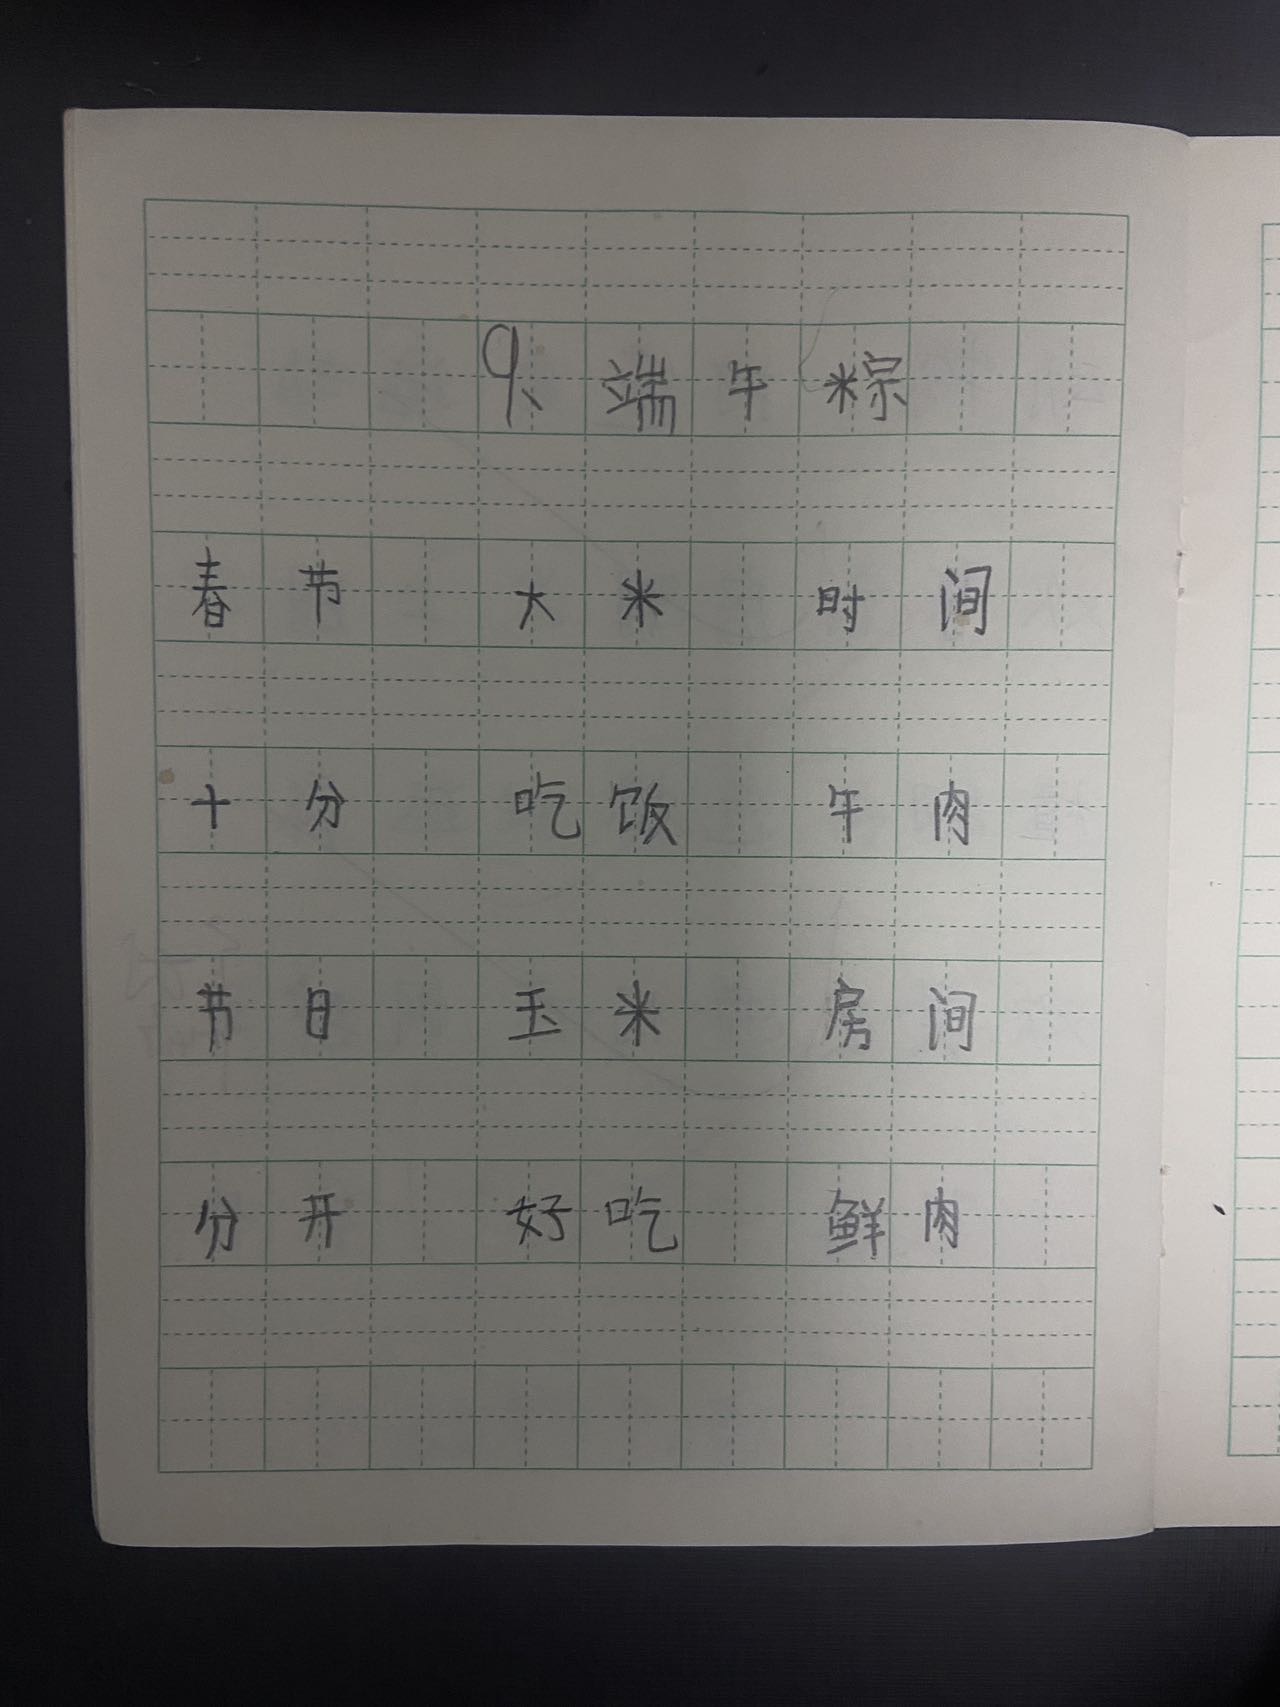 9、端午粽
春节 大米 时间
十分 吃饭 午肉
节日 玉米 房间
分开 好吃 鲜肉